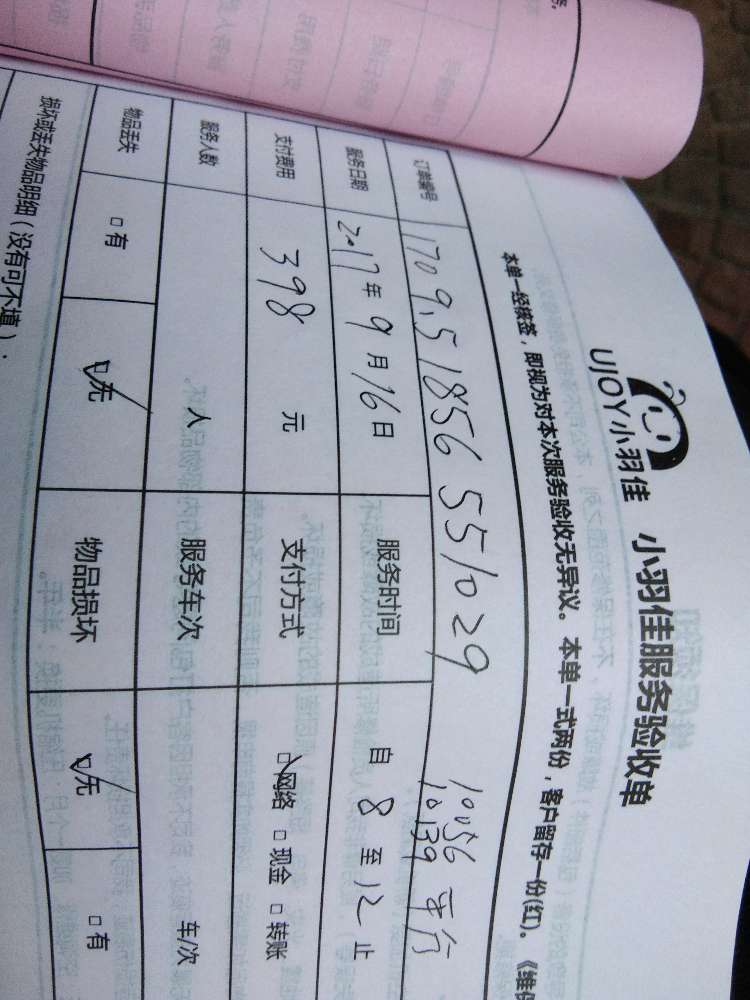 UJOY小羽佳 小羽佳服务验收单
本单一经核签，即视为对本次服务验收无异议。本单一式两份，客户留存一份(红)。《维
订单编号 1709.51856 551029 10056 平方
10139
服务日期 2017年9月16日 服务时间 自8至12止
支付费用 398元 支付方式 □网络 □现金 □转账
服务人数 人 服务车次 车/次
物品丢失 □有 □无 物品损坏 □无 □有
损坏或丢失物品明细（没有可不填）：